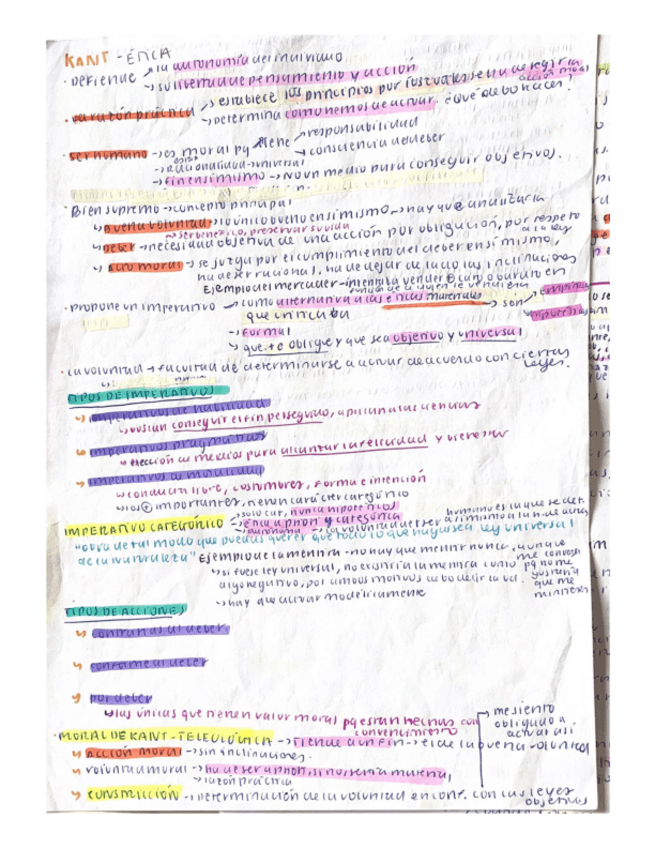 KANT - ÉTICA
· Defiende → la autonomía del individuo
→ su libertad de pensamiento y acción
· La razón práctica → establece los principios por los cuales se ha de regir la acción moral
→ Determina como hemos de actuar. ¿Qué debo hacer?
· ser humano → es moral pq tiene → responsabilidad
→ consciencia de deber
→ racionalidad universal
→ fin en sí mismo → No un medio para conseguir objetivos.
· Bien supremo → concepto principal
↳ Buena voluntad → lo único bueno en sí mismo → hay que analizarla
→ ser benéfico, preservar su vida
↳ Deber → necesidad objetiva de una acción por obligación, por respeto a la ley
↳ acto moral → se juzga por el cumplimiento del deber en sí mismo,
ha de ser racional, ha de dejar de lado las inclinaciones
Ejemplo del mercader → vender caro o barato en
· Propone un imperativo → como alternativa a las éticas materiales → son empíricas
que vincula
→ Formal
→ que te oblige y que sea objetivo y universal
· la voluntad → facultad de determinarse a actuar de acuerdo con ciertas leyes.
TIPOS DE IMPERATIVOS
↳ imperativos de habilidad
↳ buscan conseguir el fin perseguido, aplican a las ciencias
↳ imperativos pragmáticos
↳ elección de medios para alcanzar la felicidad y bienestar
↳ imperativos de moralidad
↳ conducta libre, costumbres, forma e intención
↳ los + importantes, tienen carácter categórico
IMPERATIVO CATEGÓRICO → ética a priori y categórica
"obra de tal modo que puedas querer que todo lo que hagas sea ley universal
de la naturaleza" Ejemplo de la mentira → no hay que mentir nunca, aunque me convenga
↳ si fuese ley universal, no existiría la mentira como pq no me
algo negativo, por ambos motivos debo decir la vd. gustaría que me mintiesen
↳ hay que actuar modélicamente
TIPOS DE ACCIONES
↳ contrarias al deber
↳ conforme al deber
↳ por deber
↳ las únicas que tienen valor moral pq están hechas con convencimiento → me siento obligado a actuar así
· MORAL DE KANT - TELEOLÓGICA → Tiende a un fin → el de la buena voluntad
↳ acción moral → sin inclinaciones.
↳ voluntad moral → ha de ser a priori, si no sería material
↳ razón práctica
↳ CONSTRICCIÓN → Determinación de la voluntad en conf. con las leyes objetivas